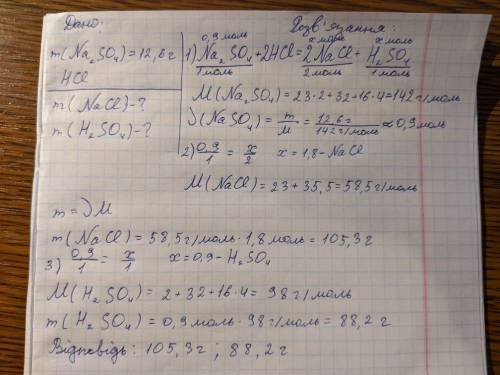 Дано: Розв'язання:
m(Na₂SO₄)=12,6г
HCl
m(NaCl)-?
m(H₂SO₄)-?
0,9моль x моль x моль
1) Na₂SO₄+2HCl=2NaCl+H₂SO₄
1моль 2моль 1моль
M(Na₂SO₄)=23·2+32+16·4=142г/моль
ν(NaSO₄)=m/M=12,6г/142г/моль≈0,9моль
2) 0,9/1=x/2 x=1,8-NaCl
M(NaCl)=23+35,5=58,5г/моль
m=νM
m(NaCl)=58,5г/моль·1,8моль=105,3г
3) 0,9/1=x/1 x=0,9-H₂SO₄
M(H₂SO₄)=2+32+16·4=98г/моль
m(H₂SO₄)=0,9моль·98г/моль=88,2г
Відповідь: 105,3г; 88,2г